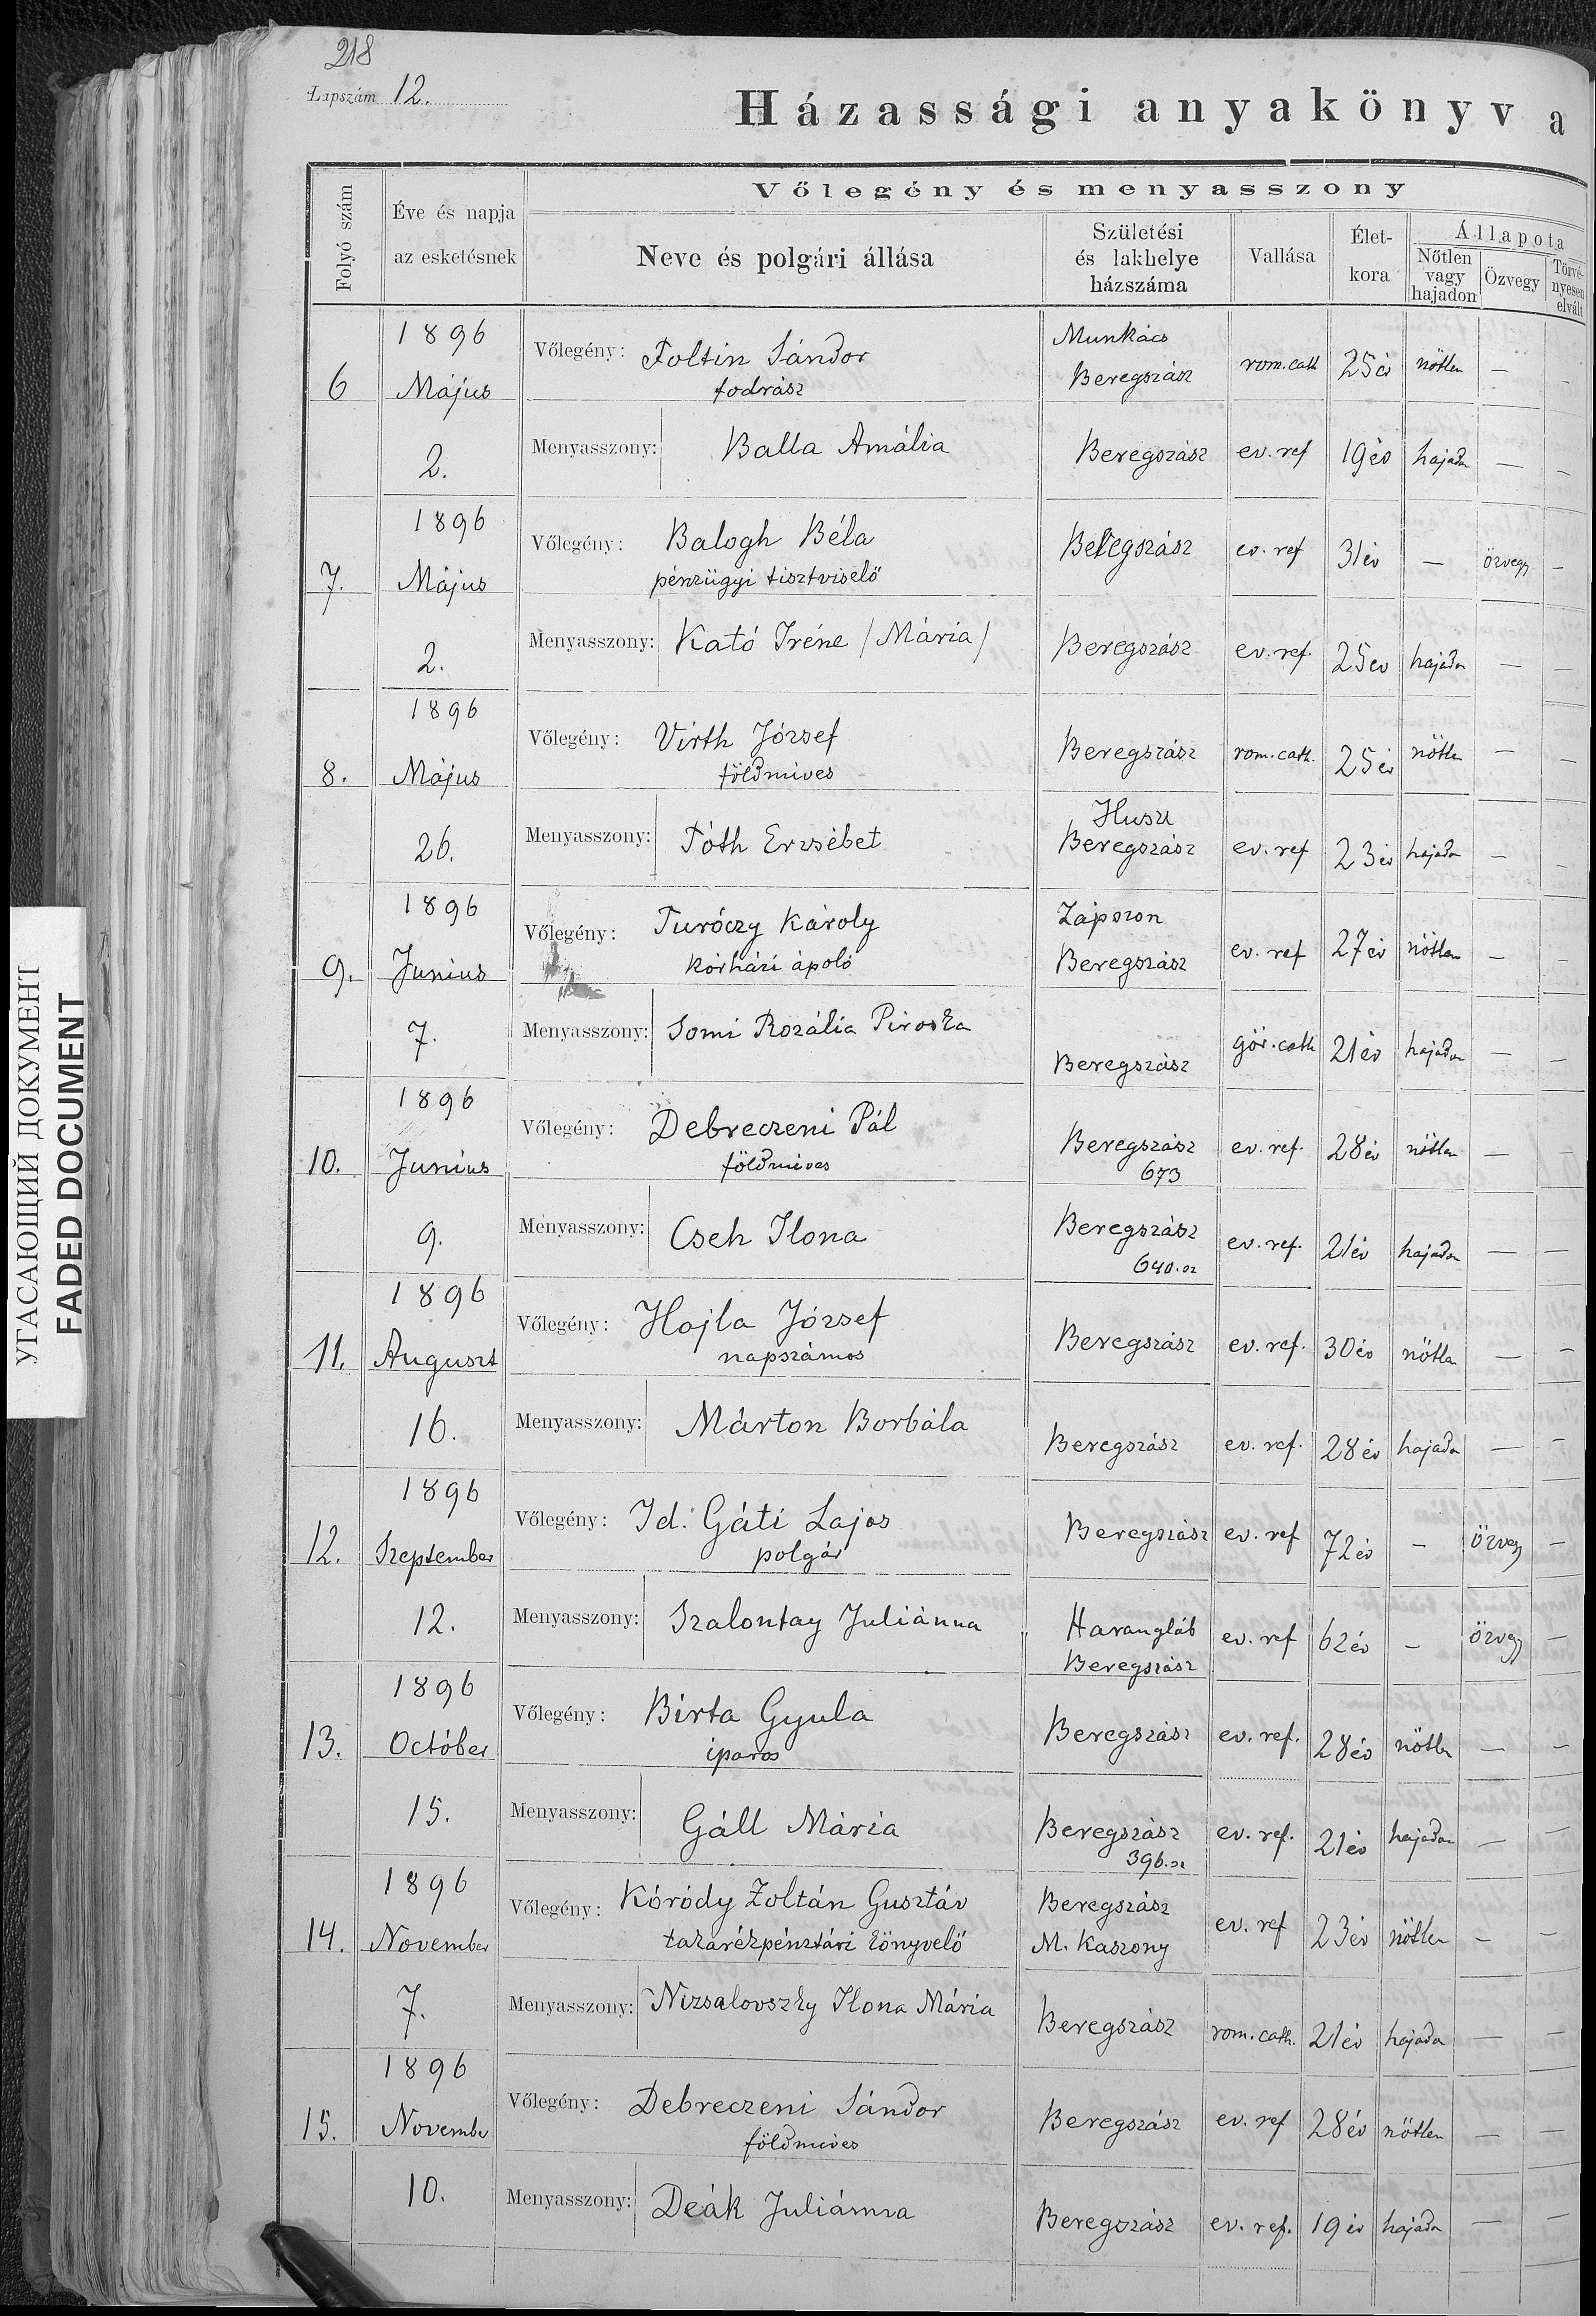 218
Lapszám 12.
Házassági anyakönyv a
Folyó szám
Éve és napja
az esketésnek
Vőlegény és menyasszony
Neve és polgári állása
Születési
és lakhelye
házszáma
Vallása
Élet-
kora
Állapota
Nőtlen
vagy
hajadon
Özvegy
Törvé-
nyesen
elvált
УГАСАЮЩИЙ ДОКУМЕНТ
FADED DOCUMENT
1896
6 Május
2.
Vőlegény: Foltin Sándor
fodrász
Munkács
Beregszász
rom. cath 25 év nőtlen — —
Menyasszony: Balla Amália
Beregszász ev. ref 19 év hajadon — —
1896
7. Május
2.
Vőlegény: Balogh Béla
pénzügyi tisztviselő
Beregszász ev. ref 31 év — özvegy —
Menyasszony: Kató Iréne /Mária/
Beregszász ev. ref. 25 év hajadon — —
1896
8. Május
26.
Vőlegény: Virth József
földmives
Beregszász rom. cath. 25 év nőtlen — —
Menyasszony: Tóth Erzsébet
Huszt
Beregszász
ev. ref 23 év hajadon — —
1896
9. Junius
7.
Vőlegény: Turóczy Károly
kórházi ápoló
Zápszon
Beregszász
ev. ref 27 év nőtlen — —
Menyasszony: Somi Rozália Piroska
Beregszász gör. cath 21 év hajadon — —
1896
10. Junius
9.
Vőlegény: Debreczeni Pál
földmives
Beregszász
673
ev. ref. 28 év nőtlen — —
Menyasszony: Cseh Ilona
Beregszász
640. sz
ev. ref. 21 év hajadon — —
1896
11. Auguszt
16.
Vőlegény: Hajla József
napszámos
Beregszász ev. ref. 30 év nőtlen — —
Menyasszony: Márton Borbála
Beregszász ev. ref. 28 év hajadon — —
1896
12. Szeptember
12.
Vőlegény: Id. Gáti Lajos
polgár
Beregszász ev. ref 72 év — özvegy —
Menyasszony: Szalontay Juliánna
Harangláb
Beregszász
ev. ref 62 év — özvegy —
1896
13. Október
15.
Vőlegény: Birta Gyula
iparos
Beregszász ev. ref. 28 év nőtlen — —
Menyasszony: Gáll Mária
Beregszász
396. sz
ev. ref. 21 év hajadon — —
1896
14. November
7.
Vőlegény: Kóródy Zoltán Gusztáv
takarékpénztári könyvelő
Beregszász
M. Kaszony
ev. ref 23 év nőtlen — —
Menyasszony: Nizsalovszky Ilona Mária
Beregszász rom. cath. 21 év hajadon — —
1896
15. November
10.
Vőlegény: Debreczeni Sándor
földmives
Beregszász ev. ref 28 év nőtlen — —
Menyasszony: Deák Juliánna
Beregszász ev. ref. 19 év hajadon — —